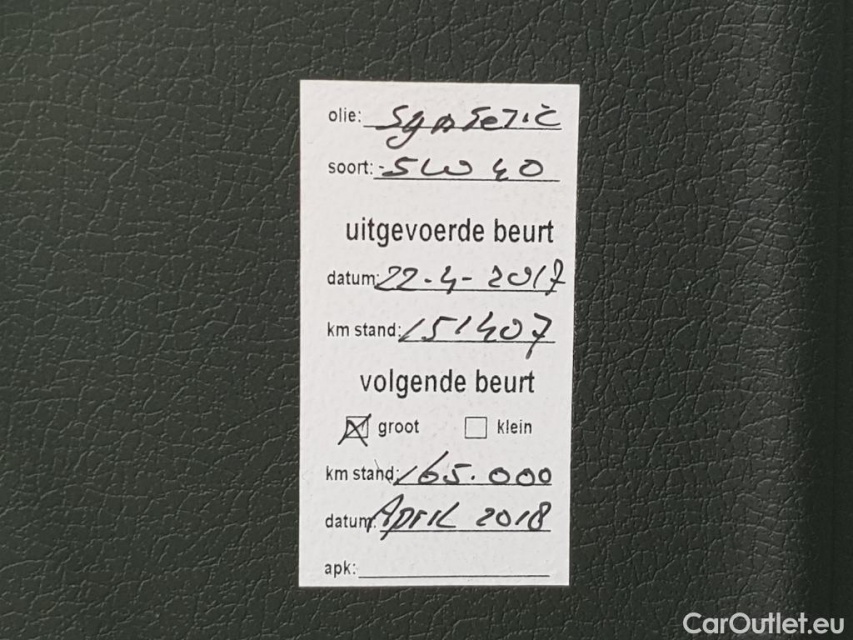 olie: Syntetic
soort: 5W40
uitgevoerde beurt
datum: 22-4-2017
km stand: 151407
volgende beurt
groot klein
km stand: 165.000
datum: April 2018
apk:
CarOutlet.eu